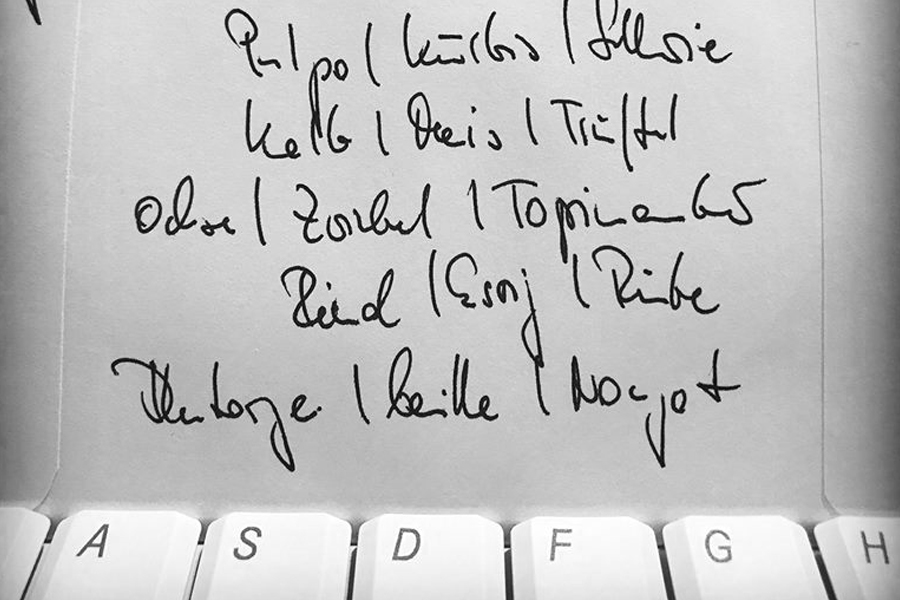 Pulpo | Kürbis | Sellerie
Kalb | Mais | Trüffel
Ochse | Zwiebel | Topinambur
Rind | Essig | Rübe
| Vanille | Nougat
A S D F G H